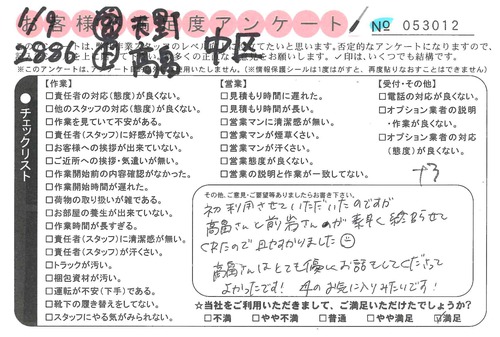 お客様満足度アンケート
1/9
営 天野
2886
中区
№ 053012
※このアンケートは、アンケート
※(情報保護シールは1度はがすと、再度貼りなおすことはできません)
チェックリスト
【作業】
□責任者の対応(態度)が良くない。
□他のスタッフの対応(態度)が良くない。
□作業を見ていて不安がある。
□責任者(スタッフ)に好感が持てない。
□お客様への挨拶が出来ていない。
□ご近所への挨拶・気遣いが無い。
□作業開始前の内容確認がなかった。
□作業開始時間が遅れた。
□荷物の取り扱いが雑である。
□お部屋の養生が出来ていない。
□作業時間が長すぎる。
□責任者(スタッフ)に清潔感が無い。
□責任者(スタッフ)が汗くさい。
□トラックが汚い。
□梱包資材が汚い。
□運転が不安(下手)である。
□靴下の履き替えをしてない。
□スタッフにやる気がみられない。
【営業】
□見積もり時間に遅れた。
□見積もり時間が長い。
□営業マンに清潔感が無い。
□営業マンが煙草くさい。
□営業マンが汗くさい。
□営業態度が良くない。
□営業の説明と作業が一致してない。
【受付・その他】
□電話の対応が良くない。
□オプション業者の説明
・作業が良くない。
□オプション業者の対応
(態度)が良くない。
その他、ご意見・ご要望等ありましたらお書き下さい。
初利用させていただいたのですが
高畠さんと前岩さんのが素早く終わらせて
くれたので助かりました
高畠さんはとても優しくお話をしてくださって
よかったです! 私のお気に入りみたいです!
☆当社をご利用いただきまして、ご満足いただけたでしょうか?
□不満 □やや不満 □普通 □やや満足 ☑満足